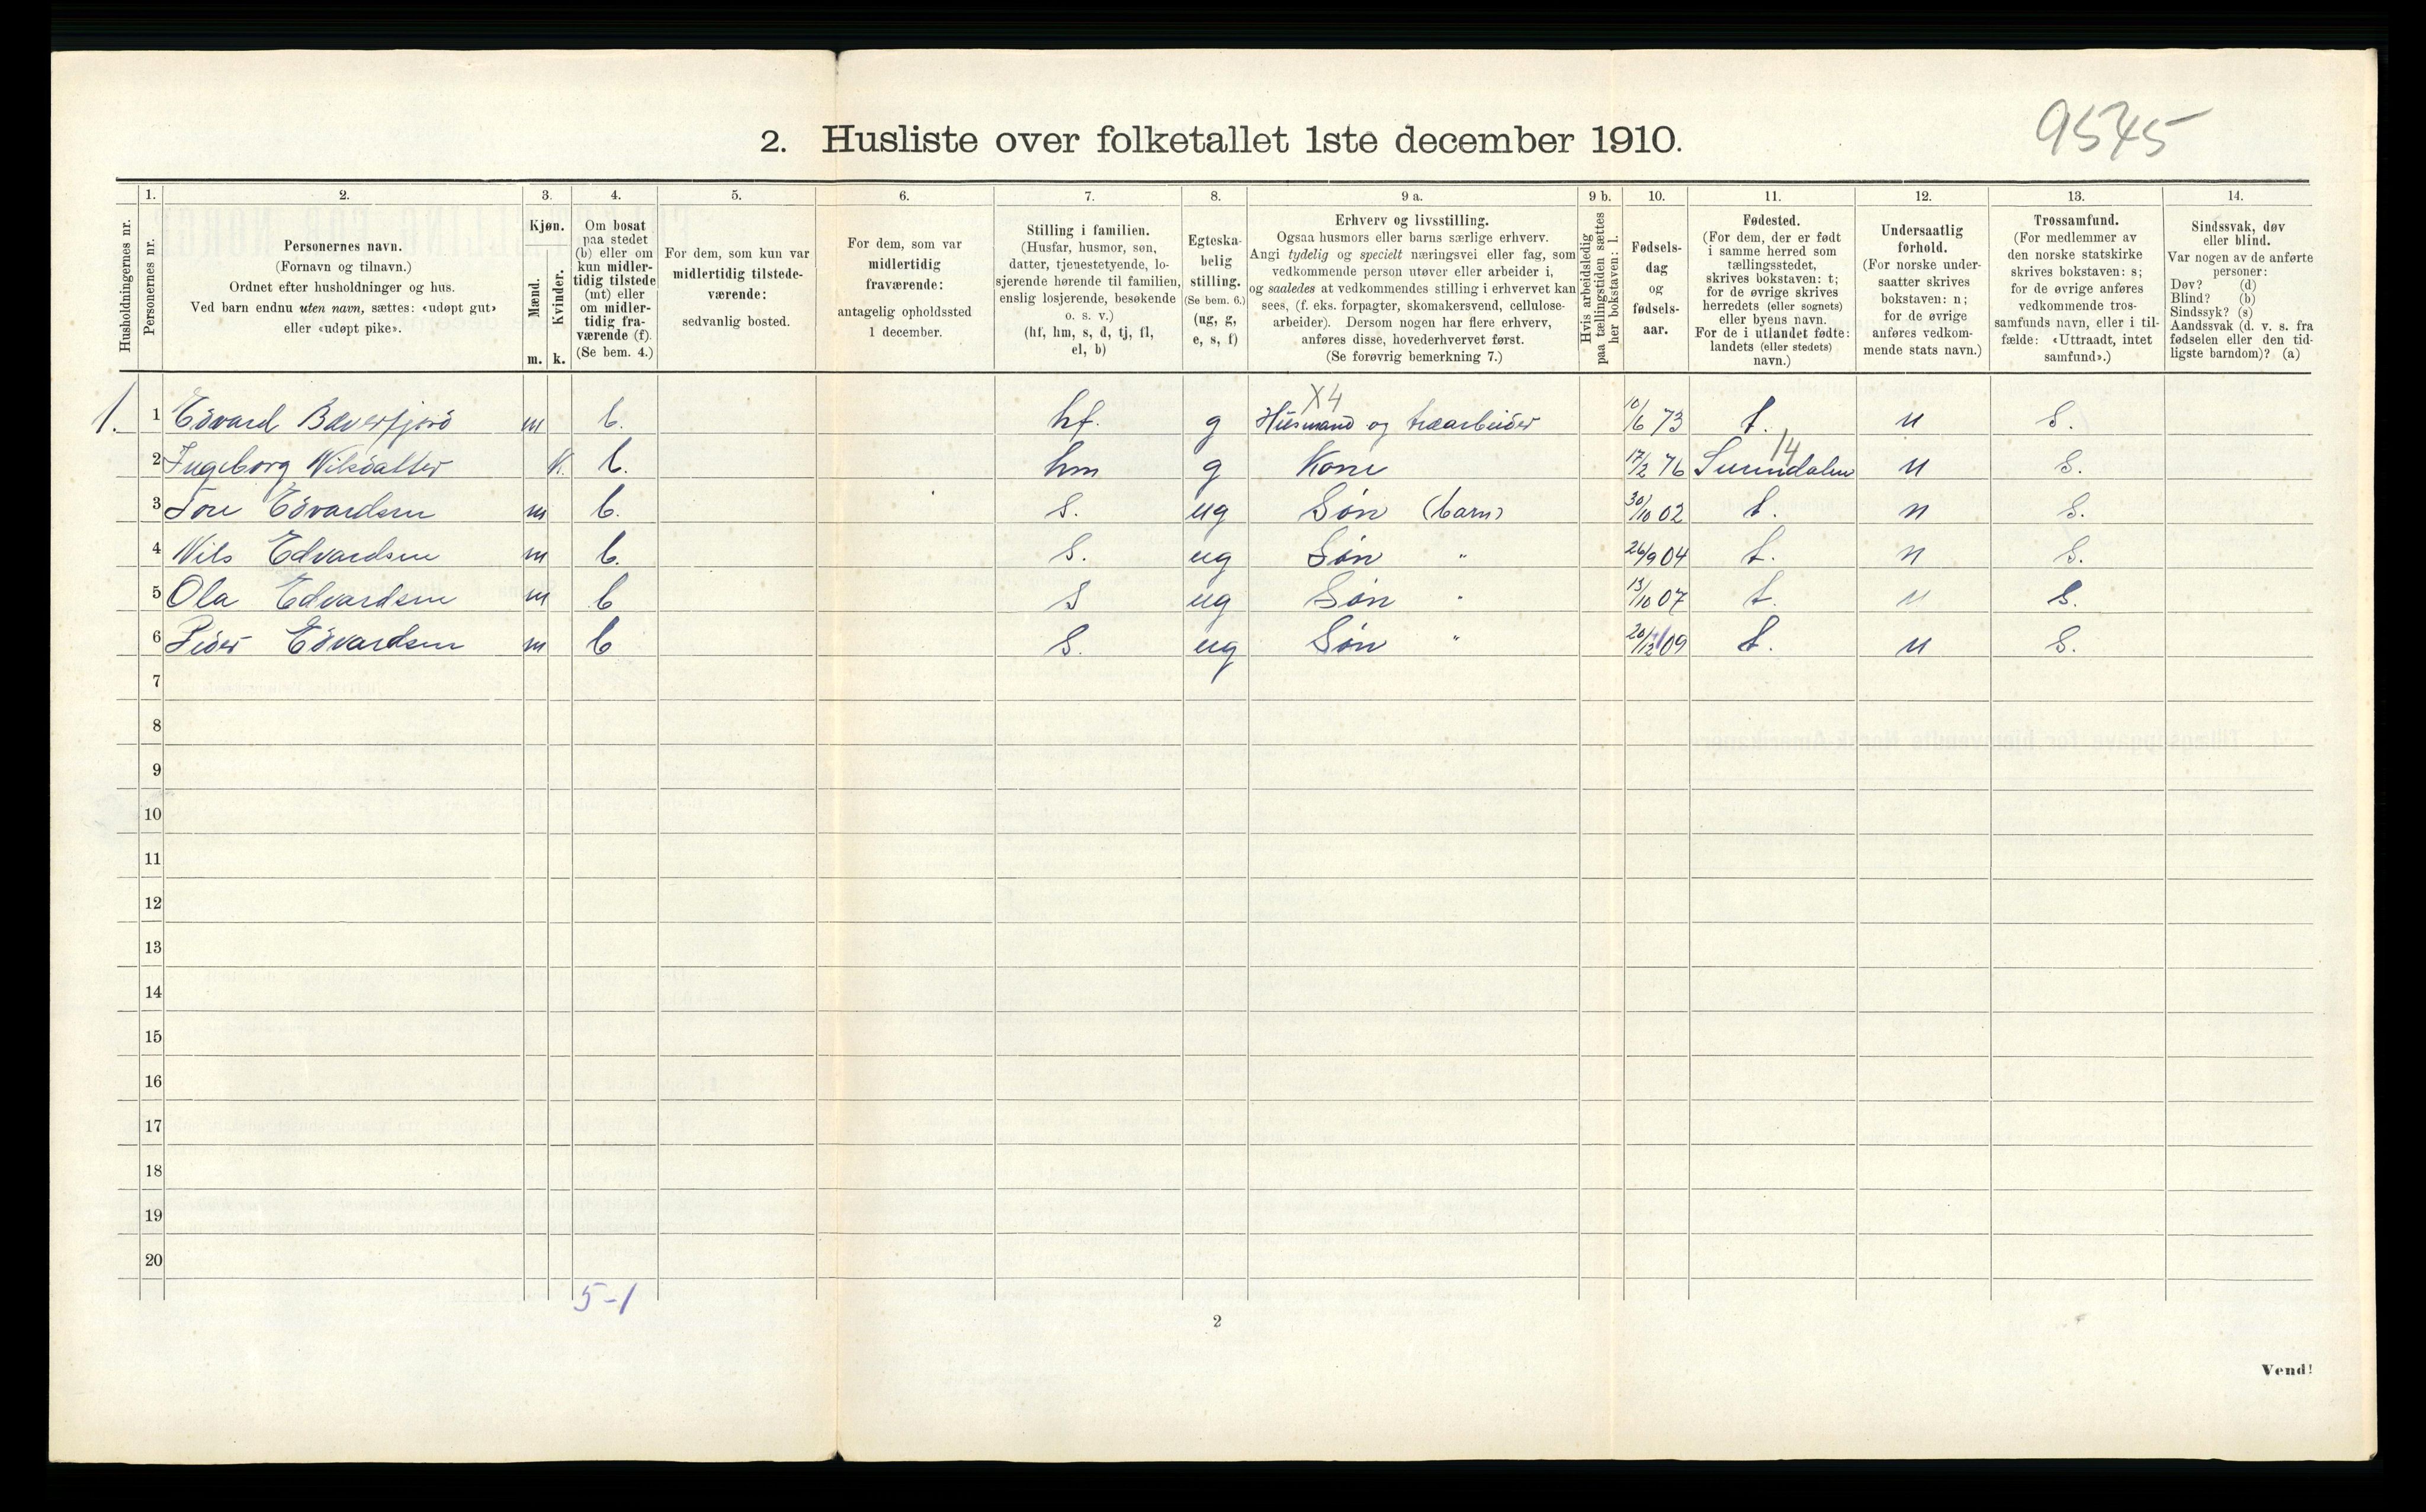 2. Husliste over folketallet 1ste december 1910.
9545
Husholdningernes nr.
1.
Personernes nr.
2.
Personernes navn.
(Fornavn og tilnavn.)
Ordnet efter husholdninger og hus.
Ved barn endnu uten navn, sættes: «udøpt gut»
eller «udøpt pike».
3.
Kjøn.
Mænd.
Kvinder.
m. k.
4.
Om bosat
paa stedet
(b) eller om
kun midler-
tidig tilstede
(mt) eller
om midler-
tidig fra-
værende (f).
(Se bem. 4.)
5.
For dem, som kun var
midlertidig tilstede-
værende:
sedvanlig bosted.
6.
For dem, som var
midlertidig
fraværende:
antagelig opholdssted
1 december.
7.
Stilling i familien.
(Husfar, husmor, søn,
datter, tjenestetyende, lo-
sjerende hørende til familien,
enslig losjerende, besøkende
o. s. v.)
(hf, hm, s, d, tj, fl,
el, b)
8.
Egteska-
belig
stilling.
(Se bem. 6.)
(ug, g,
e, s, f)
9 a.
Erhverv og livsstilling.
Ogsaa husmors eller barns særlige erhverv.
Angi tydelig og specielt næringsvei eller fag, som
vedkommende person utøver eller arbeider i,
og saaledes at vedkommendes stilling i erhvervet kan
sees, (f. eks. forpagter, skomakersvend, cellulose-
arbeider). Dersom nogen har flere erhverv,
anføres disse, hovederhvervet først.
(Se forøvrig bemerkning 7.)
9 b.
Hvis arbeidsledig
paa tællingstiden sættes
her bokstaven: l.
10.
Fødsels-
dag
og
fødsels-
aar.
11.
Fødested.
(For dem, der er født
i samme herred som
tællingsstedet,
skrives bokstaven: t;
for de øvrige skrives
herredets (eller sognets)
eller byens navn.
For de i utlandet fødte:
landets (eller stedets)
navn.)
12.
Undersaatlig
forhold.
(For norske under-
saatter skrives
bokstaven: n;
for de øvrige
anføres vedkom-
mende stats navn.)
13.
Trossamfund.
(For medlemmer av
den norske statskirke
skrives bokstaven: s;
for de øvrige anføres
vedkommende tros-
samfunds navn, eller i til-
fælde: «Uttraadt, intet
samfund».)
14.
Sindssvak, døv
eller blind.
Var nogen av de anførte
personer:
Døv? (d)
Blind? (b)
Sindssyk? (s)
Aandssvak (d. v. s. fra
fødselen eller den tid-
ligste barndom)? (a)
X4
1. 1 Edvard Bæverfjord m b. hf. g Husmand og træarbeider 10/6 73 t. n s.
14
2 Ingeborg Nilsdatter k. b. hm g Kone 17/2 76 Surendalen n s.
3 Tore Edvardsen m b. s. ug Søn (barn) 30/10 02 t. n s.
4 Nils Edvardsen m b. s. ug Søn " 26/9 04 t. n s.
5 Ola Edvardsen m b s ug Søn " 13/10 07 t. n s.
6 Peder Edvardsen m b s. ug Søn " 20/12 09 t. n s.
7
8
9
10
11
12
13
14
15
16
17
18
19
20
5-1
2
Vend!